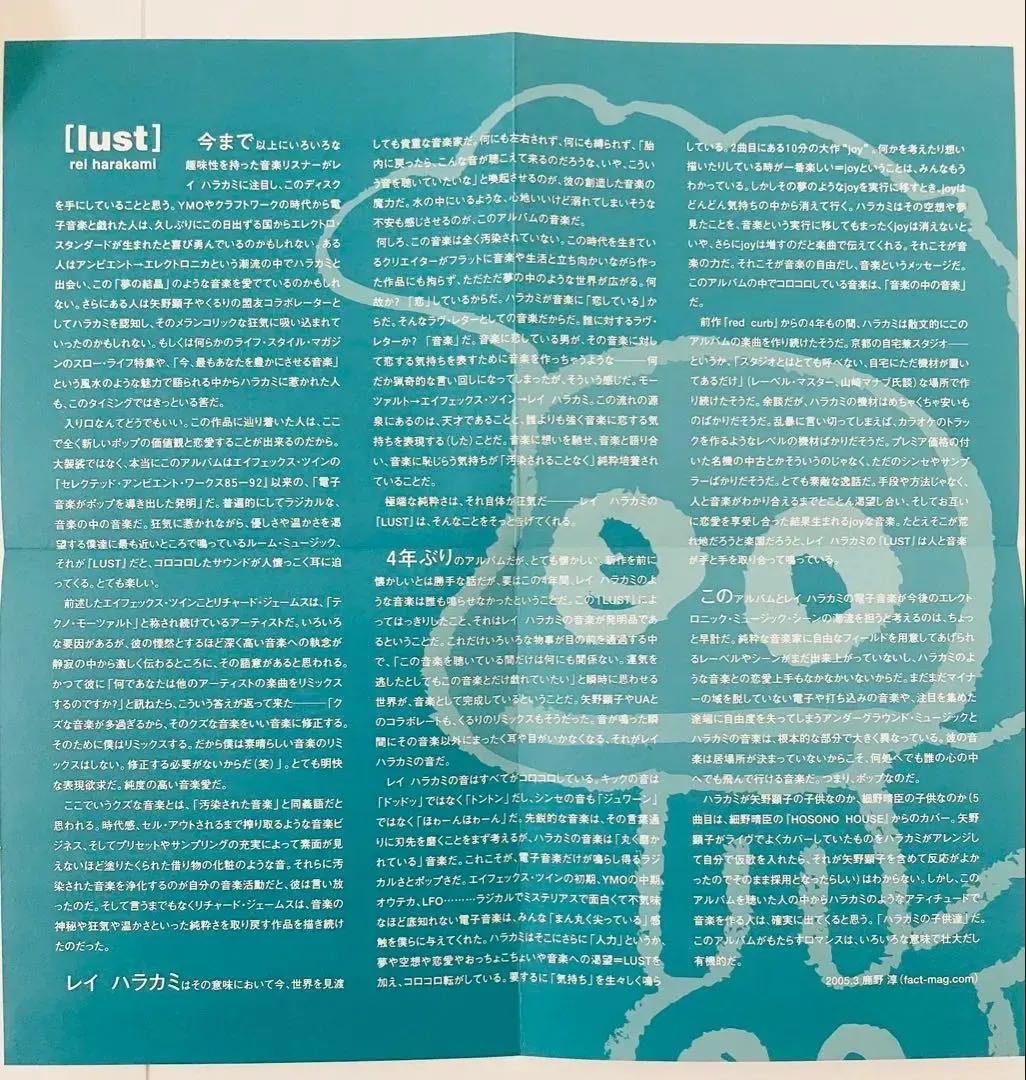 [lust]
rei harakami
今まで以上にいろいろな
趣味性を持った音楽リスナーがレ
イ ハラカミに注目し、このディスク
を手にしていることと思う。YMOやクラフトワークの時代から電
子音楽と戯れた人は、久しぶりにこの日出ずる国からエレクトロ・
スタンダードが生まれたと喜び勇んでいるのかもしれない。ある
人はアンビエント→エレクトロニカという潮流の中でハラカミと
出会い、この「夢の結晶」のような音楽を愛でているのかもしれ
ない。さらにある人は矢野顕子やくるりの盟友コラボレーターと
してハラカミを認知し、そのメランコリックな狂気に吸い込まれて
いったのかもしれない。もしくは何らかのライフ・スタイル・マガジ
ンのスロー・ライフ特集や、「今、最もあなたを豊かにさせる音楽」
という風水のような魅力で語られる中からハラカミに惹かれた人
も、このタイミングではきっといる筈だ。
入り口なんてどうでもいい。この作品に辿り着いた人は、ここ
で全く新しいポップの価値観と恋愛することが出来るのだから。
大袈裟ではなく、本当にこのアルバムはエイフェックス・ツインの
「セレクテッド・アンビエント・ワークス85ー92」以来の、「電子
音楽がポップを導き出した発明」だ。普遍的にしてラジカルな、
音楽の中の音楽だ。狂気に惹かれながら、優しさや温かさを渇
望する僕達に最も近いところで鳴っているルーム・ミュージック、
それが「LUST」だと、コロコロしたサウンドが人懐っこく耳に迫
ってくる。とても楽しい。
前述したエイフェックス・ツインことリチャード・ジェームスは、「テ
クノ・モーツァルト」と称され続けているアーティストだ。いろいろ
な要因があるが、彼の慄然とするほど深く高い音楽への執念が
静寂の中から激しく伝わるところに、その語意があると思われる。
かつて彼に「何であなたは他のアーティストの楽曲をリミックス
するのですか?」と訊ねたら、こういう答えが返って来た――「ク
ズな音楽が多過ぎるから、そのクズな音楽をいい音楽に修正する。
そのために僕はリミックスする。だから僕は素晴らしい音楽のリミ
ックスはしない。修正する必要がないからだ(笑)」。とても明快
な表現欲求だ。純度の高い音楽愛だ。
ここでいうクズな音楽とは、「汚染された音楽」と同義語だと
思われる。時代感、セル・アウトされるまで搾り取るような音楽ビ
ジネス、そしてプリセットやサンプリングの充実によって素面が見
えないほど塗りたくられた借り物の化粧のような音。それらに汚
染された音楽を浄化するのが自分の音楽活動だと、彼は言い放
ったのだ。そして言うまでもなくリチャード・ジェームスは、音楽の
神秘や狂気や温かさといった純粋さを取り戻す作品を描き続け
たのだった。
レイ ハラカミはその意味において今、世界を見渡
しても貴重な音楽家だ。何にも左右されず、何にも縛られず、「胎
内に戻ったら、こんな音が聴こえて来るのだろうな、いや、こうい
う音を聴いていたいな」と喚起させるのが、彼の創造した音楽の
魔力だ。水の中にいるような、心地いいけど溺れてしまいそうな
不安も感じさせるのが、このアルバムの音楽だ。
何しろ、この音楽は全く汚染されていない。この時代を生きてい
るクリエイターがフラットに音楽や生活と立ち向かいながら作っ
た作品にも拘らず、ただただ夢の中のような世界が広がる。何
故か? 「恋」しているからだ。ハラカミが音楽に「恋している」か
らだ。そんなラヴ・レターとしての音楽だからだ。誰に対するラヴ・
レターか? 「音楽」だ。音楽に恋している男が、その音楽に対し
て恋する気持ちを表すために音楽を作っちゃうような――何
だか猟奇的な言い回しになってしまったが、そういう感じだ。モー
ツァルト→エイフェックス・ツイン→レイ ハラカミ。この流れの源
泉にあるのは、天才であること、誰よりも強く音楽に恋する気
持ちを表現する(した)ことだ。音楽に想いを馳せ、音楽と語り合
い、音楽に恥じらう気持ちが「汚染されることなく」純粋培養され
ていることだ。
極端な純粋さは、それ自体が狂気だ――レイ ハラカミの
「LUST」は、そんなことをそっと告げてくれる。
4年ぶりのアルバムだが、とても懐かしい。新作を前に
懐かしいとは勝手な話だが、要はこの4年間、レイ ハラカミのよ
うな音楽は誰も鳴らせなかったということだ。この「LUST」によ
ってはっきりしたこと、それはレイ ハラカミの音楽が発明品であ
るということだ。これだけいろいろな物事が目の前を通過する中
で、「この音楽を聴いている間だけは何にも関係ない。運気を
逃したとしてもこの音楽とだけ戯れていたい」と瞬時に思わせる
世界が、音楽として完成しているということだ。矢野顕子やUAと
のコラボレートも、くるりのリミックスもそうだった。音が鳴った瞬
間にその音楽以外にまったく耳や目がいかなくなる、それがレイ
ハラカミの音だ。
レイ ハラカミの音はすべてがコロコロしている。キックの音は
「ドッドッ」ではなく「トントン」だし、シンセの音も「ジュワーン」
ではなく「ほわーんほわーん」だ。先鋭的な音楽は、その言葉通
りに刃先を磨くことをまず考えるが、ハラカミの音楽は「丸く磨か
れている」音楽だ。これこそが、電子音楽だけが鳴らし得るラジ
カルさとポップさだ。エイフェックス・ツインの初期、YMOの中期、
オウテカ、LFO………ラジカルでミステリアスで面白くて不気味
なほど底知れない電子音楽は、みんな「まん丸く尖っている」感
触を僕らに与えてくれた。ハラカミはそこにさらに「人力」というか、
夢や空想や恋愛やおっちょこちょいや音楽への渇望=LUSTを
加え、コロコロ転がしている。要するに「気持ち」を生々しく鳴ら
している。2曲目にある10分の大作“joy”。何かを考えたり想い
描いたりしている時が一番楽しい=joyということは、みんなもう
わかっている。しかしその夢のようなjoyを実行に移すとき、joyは
どんどん気持ちの中から消えて行く。ハラカミはその空想や夢
見たことを、音楽という実行に移してもまったくjoyは消えないと、
いや、さらにjoyは増すのだと楽曲で伝えてくれる。それこそが音
楽の力だ。それこそが音楽の自由だし、音楽というメッセージだ。
このアルバムの中でコロコロしている音楽は、「音楽の中の音楽」
だ。
前作「red curb」からの4年もの間、ハラカミは散文的にこの
アルバムの楽曲を作り続けたそうだ。京都の自宅兼スタジオ――
というか、「スタジオとはとても呼べない、自宅にただ機材が置い
てあるだけ」(レーベル・マスター、山崎マナブ氏談)な場所で作
り続けたそうだ。余談だが、ハラカミの機材はめちゃくちゃ安いも
のばかりだそうだ。乱暴に言い切ってしまえば、カラオケのトラッ
クを作るようなレベルの機材ばかりだそうだ。プレミア価格の付
いた名機の中古とかそういうのじゃなく、ただのシンセやサンプ
ラーばかりだそうだ。とても素敵な逸話だ。手段や方法じゃなく、
人と音楽がわかり合えるまでとことん渇望し合い、そしてお互い
に恋愛を享受し合った結果生まれるjoyな音楽。たとえそこが荒
れ地だろうと楽園だろうと、レイ ハラカミの「LUST」は人と音楽
が手と手を取り合って鳴っている。
このアルバムとレイ ハラカミの電子音楽が今後のエレクト
ロニック・ミュージック・シーンの潮流を担うと考えるのは、ちょっ
と早計だ。純粋な音楽家に自由なフィールドを用意してあげられ
るレーベルやシーンがまだ出来上がっていないし、ハラカミのよ
うな音楽との恋愛上手もなかなかいないからだ。まだまだマイナ
ーの域を脱していない電子や打ち込みの音楽や、注目を集めた
途端に自由度を失ってしまうアンダーグラウンド・ミュージックと
ハラカミの音楽は、根本的な部分で大きく異なっている。彼の音
楽は居場所が決まっていないからこそ、何処へでも誰の心の中
へでも飛んで行ける音楽だ。つまり、ポップなのだ。
ハラカミが矢野顕子の子供なのか、細野晴臣の子供なのか(5
曲目は、細野晴臣の『HOSONO HOUSE』からのカバー。矢野
顕子がライヴでよくカバーしていたものをハラカミがアレンジし
て自分で仮歌を入れたら、それが矢野顕子を含めて反応がよか
ったのでそのまま採用となったらしい)はわからない。しかし、この
アルバムを聴いた人の中からハラカミのようなアティチュードで
音楽を作る人は、確実に出てくると思う。「ハラカミの子供達」だ。
このアルバムがもたらすロマンスは、いろいろな意味で壮大だし
有機的だ。
2005.3 鹿野 淳(fact-mag.com)